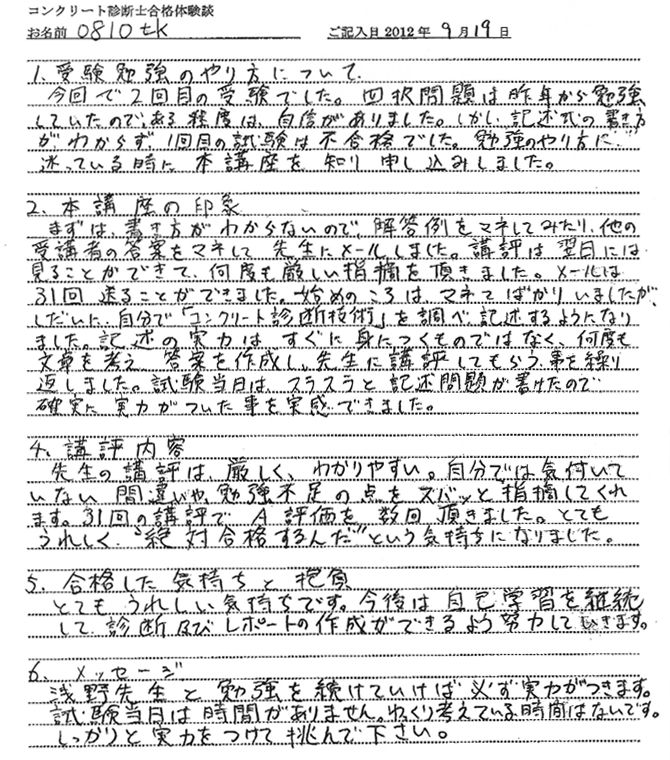 コンクリート診断士合格体験談
お名前 0810tk ご記入日2012年 9月19日
1. 受験勉強のやり方について
今回で2回目の受験でした。四択問題は昨年から勉強
していたので、ある程度は自信がありました。しかし、記述式の書き方
がわからず、1回目の試験は不合格でした。勉強のやり方に
迷っている時に本講座を知り申し込みしました。
2. 本講座の印象
まずは、書き方がわからないので、解答例をマネしてみたり、他の
受講者の答案をマネして先生にメールしました。講評は翌日には
見ることができて、何度も厳しい指摘を頂きました。メールは
31回送ることができました。始めのころは、マネてばかりいましたが、
しだいに、自分で「コンクリート診断技術」を調べ、記述するようになり
ました。記述の実力は、すぐに身につくものではなく、何度も
文章を考え、答案を作成し、先生に講評してもらう事を繰り
返しました。試験当日は、スラスラと記述問題が書けたので
確実に実力がついた事を実感できました。
4. 講評内容
先生の講評は、厳しく、わかりやすい。自分では気付いて
いない間違いや、勉強不足の点をズバッと指摘してくれ
ます。31回の講評で、A評価を数回頂きました。とても
うれしく、“絶対合格するんだ”という気持ちになりました。
5. 合格した気持ちと抱負
とてもうれしい気持ちです。今後は自己学習を継続
して、診断及びレポートの作成ができるよう努力していきます。
6. メッセージ
浅野先生と勉強を続けていけば必ず実力がつきます。
試験当日は時間がありません。ゆっくり考えている時間はないです。
しっかりと実力をつけて挑んで下さい。